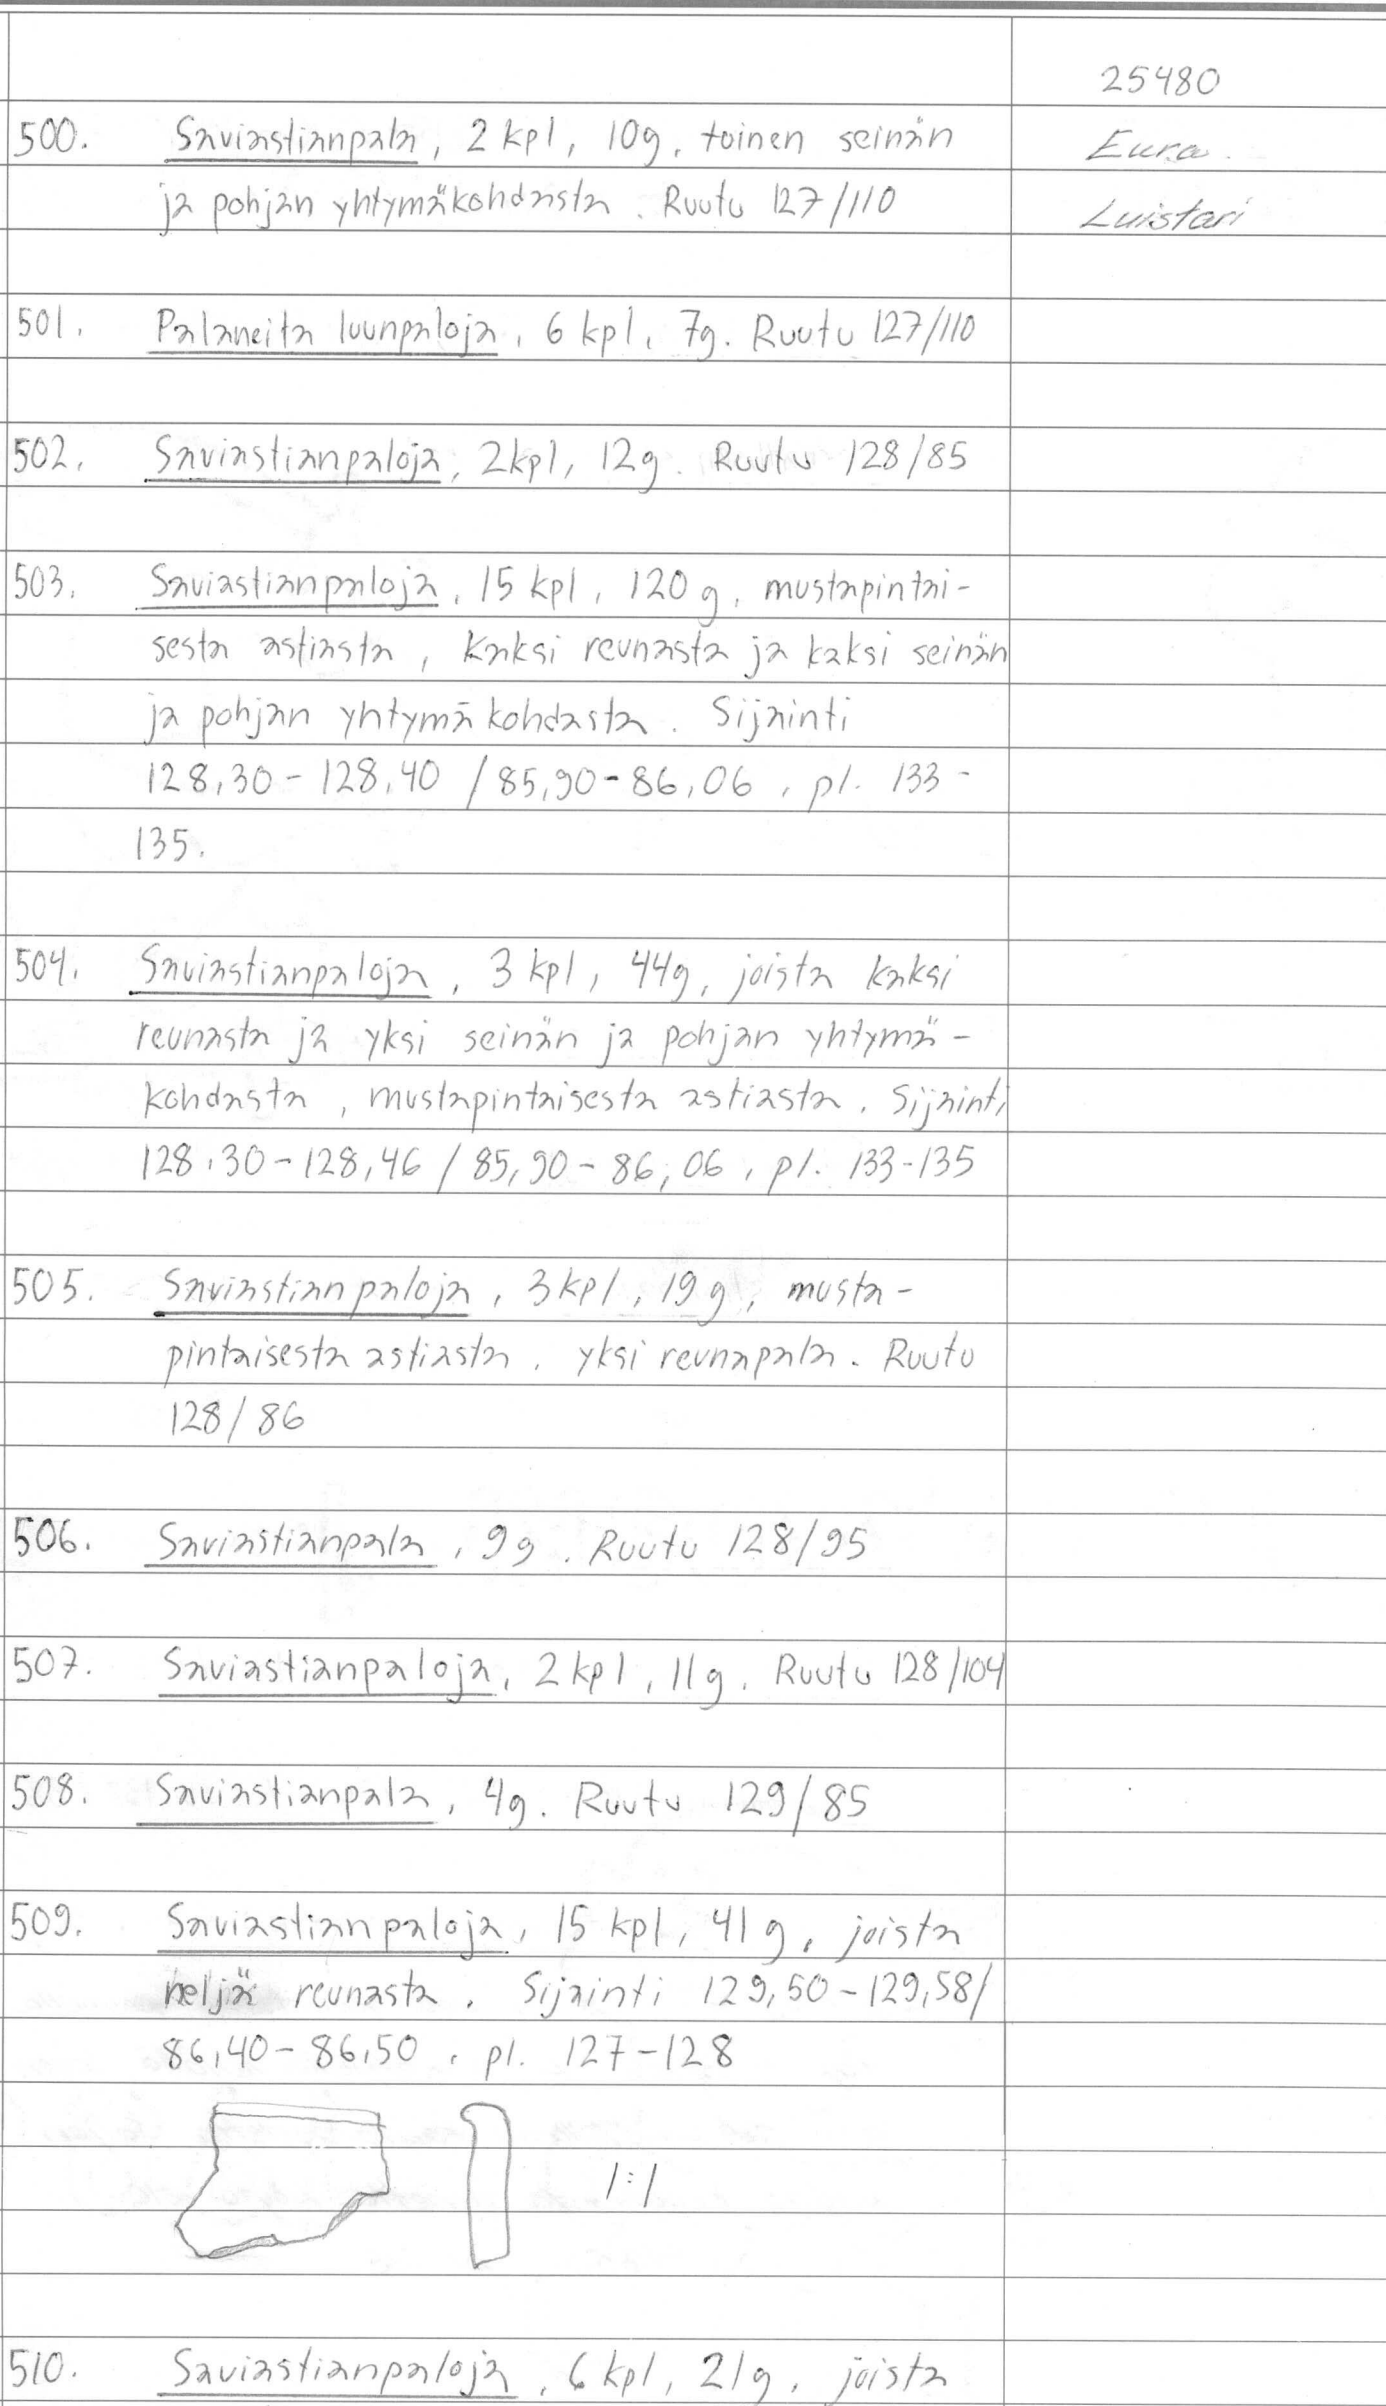 25480
500. Saviastianpala, 2 kpl, 10g, toinen seinän
Eura.
ja pohjan yhtymäkohdasta. Ruutu 127/110
Luistari
501. Palaneita luunpaloja, 6 kpl, 7g. Ruutu 127/110
502. Saviastianpaloja, 2kpl, 12g. Ruutu 128/85
503. Saviastianpaloja, 15 kpl, 120 g, mustapintai-
sesta astiasta, kaksi reunasta ja kaksi seinän
ja pohjan yhtymäkohdasta. Sijainti
128,30-128,40 / 85,90-86,06, pl. 133-
135.
504. Saviastianpaloja, 3 kpl, 44g, joista kaksi
reunasta ja yksi seinän ja pohjan yhtymä-
kohdasta, mustapintaisesta astiasta. Sijainti
128,30-128,46 / 85,90-86,06, pl. 133-135
505. Saviastianpaloja, 3 kpl, 19 g, musta-
pintaisesta astiasta, yksi reunapala. Ruutu
128/86
506. Saviastianpala, 9g. Ruutu 128/95
507. Saviastianpaloja, 2 kpl, 11g. Ruutu 128/104
508. Saviastianpala, 4g. Ruutu 129/85
509. Saviastianpaloja, 15 kpl, 41 g, joista
neljä reunasta. Sijainti 129,50-129,58/
86,40-86,50, pl. 127-128
1:1
510. Saviastianpaloja, 6 kpl, 21g, joista